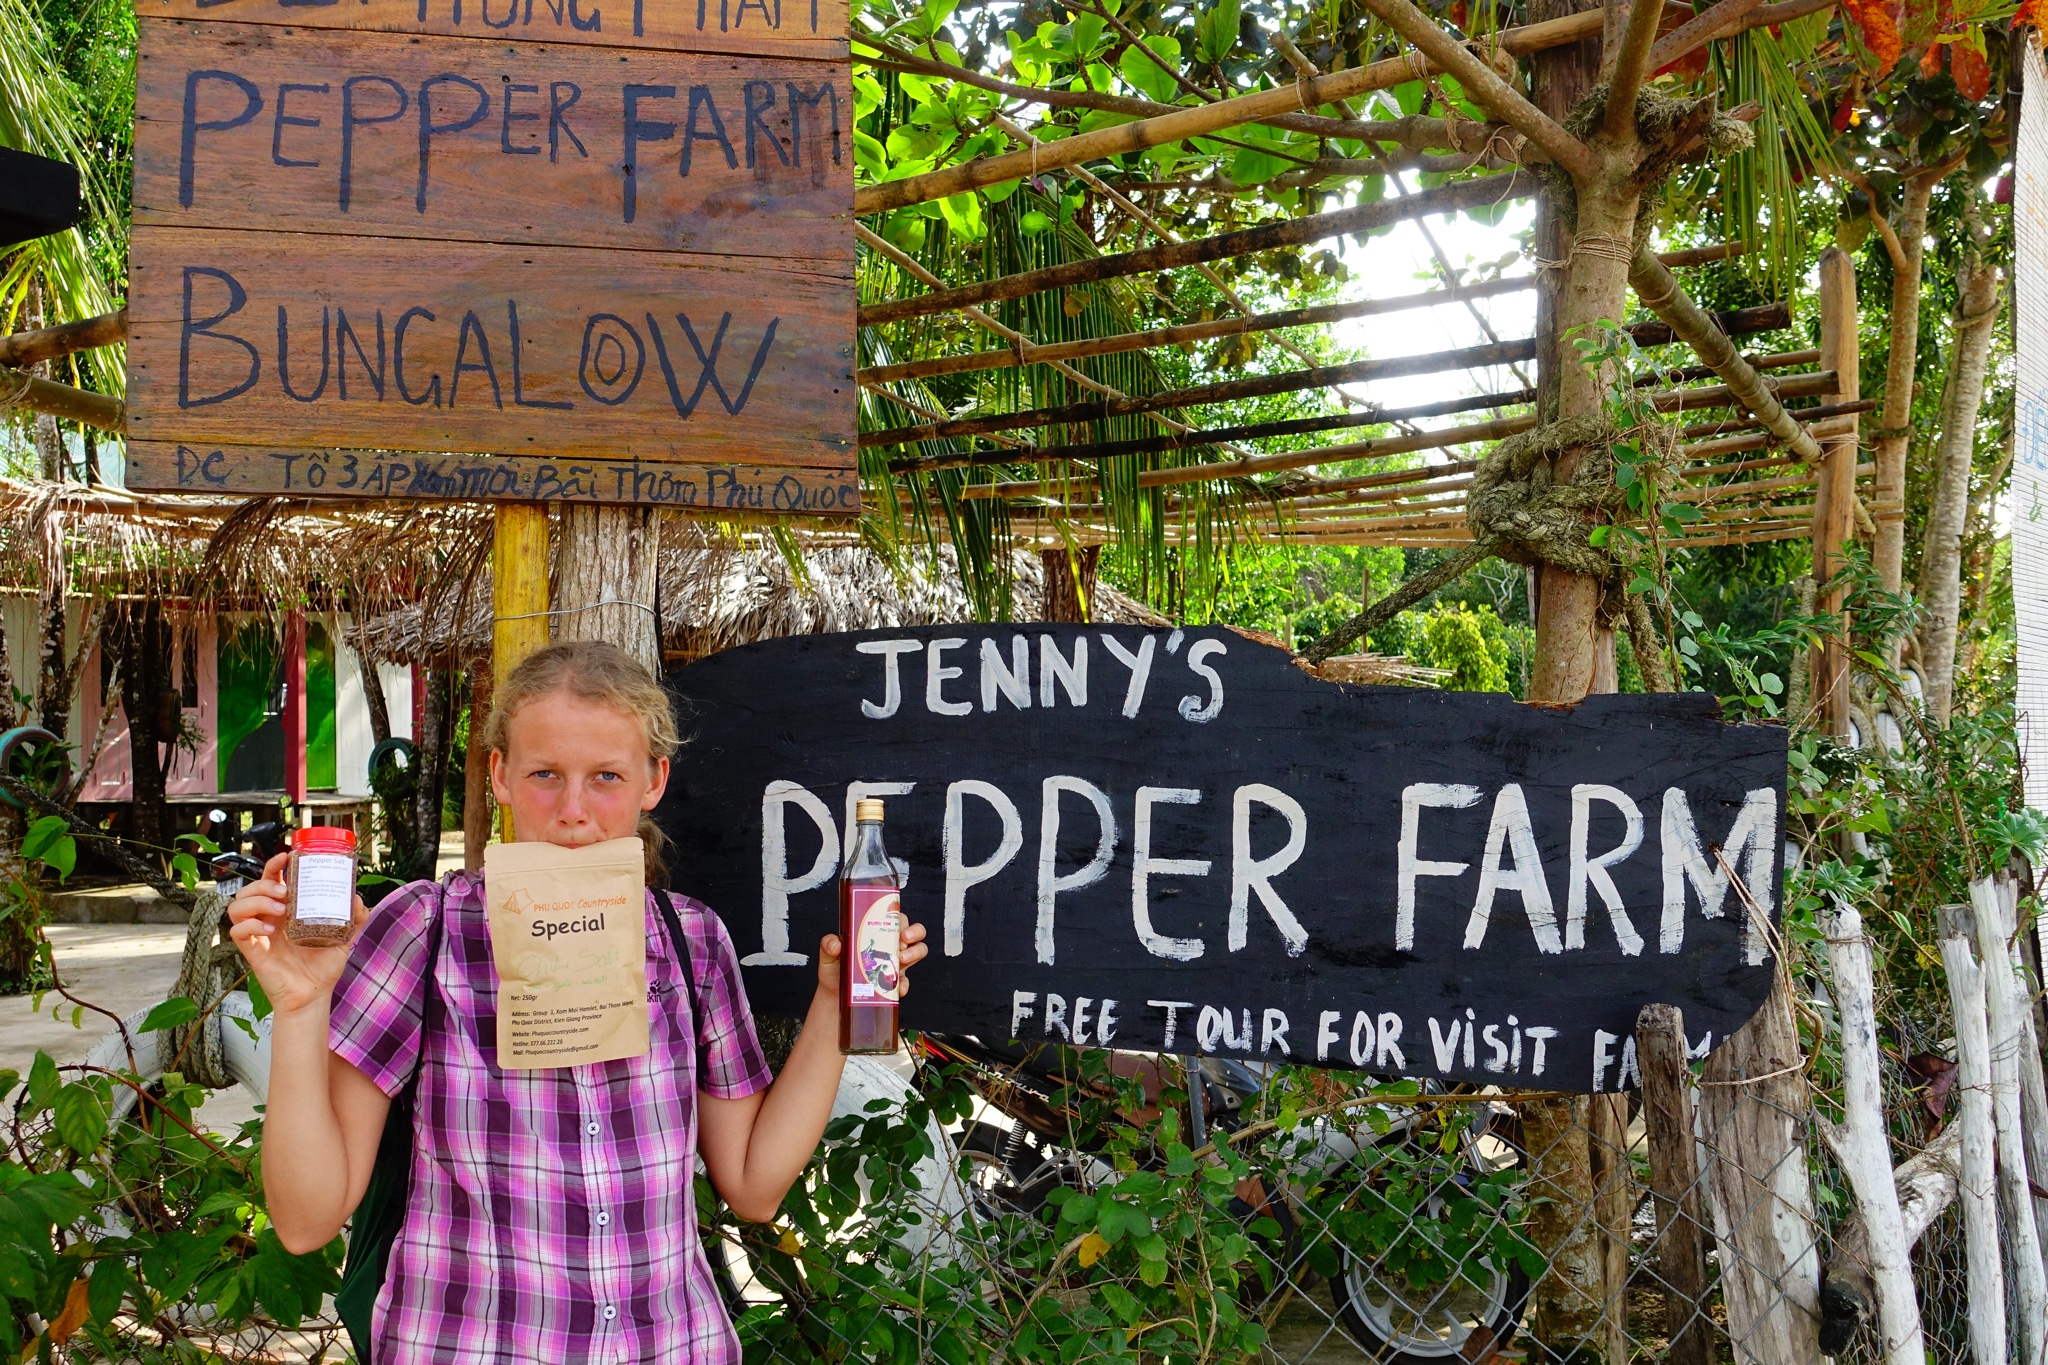 PEPPER FARM
BUNGALOW
ĐC: TỔ 3 ẤP Xóm mới Bãi Thơm Phú Quốc
JENNY'S
PEPPER FARM
FREE TOUR FOR VISIT FARM
Pepper Salt
PHU QUOC Countryside
Special
Net: 250gr
Address: Group 3, Xom Moi Hamlet, Bai Thom Ward
Phu Quoc District, Kien Giang Province
Website: Phuquoccountryside.com
Hotline: 077.66.222.28
Mail: Phuquoccountryside@gmail.com